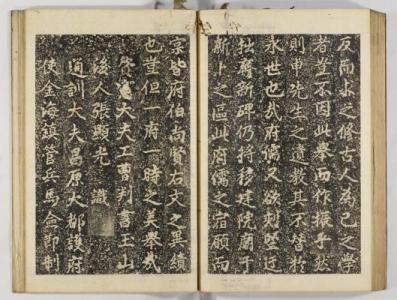 反而求之修古人為己之學
者豈不因此舉而作振乎然
則先生之遺教其不於
永世也哉府儒又欲
舊新碑仍將移建院廟于
新卜之區此府儒之宿願而
宰皆府伯尚賢右文之異績
也豈但一府一時之美舉哉
資憲大夫工曹判書玉山
後人張顯光 識
通訓大夫昌原大都護府
使金海鎮管兵馬僉節制